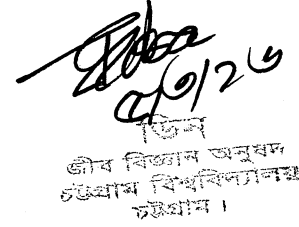 ডিন
জীব বিজ্ঞান অনুষদ
চট্টগ্রাম বিশ্ববিদ্যালয়
চট্টগ্রাম ।